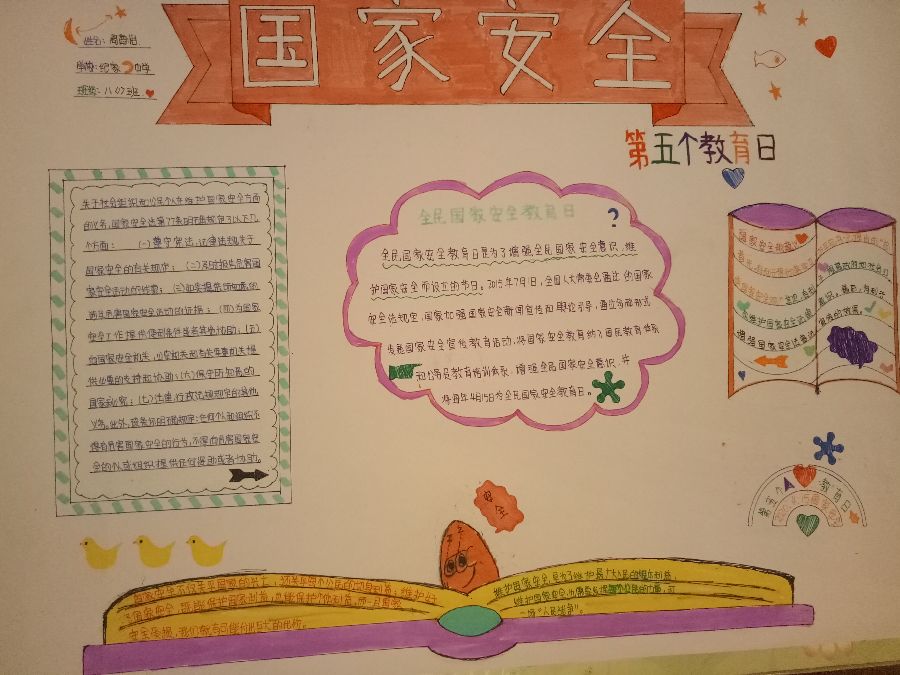 国家安全
姓名:
学校:纪家中学
班级:八(7)班
第五个教育日
关于社会组织和公民个人在维护国家安全方面
的义务,国家安全法第77条明确规定了以下几
个方面: (一)遵守宪法,法律法规关于
国家安全的有关规定;(二)及时报告危害国
家安全活动的线索;(三)如实提供所知悉的
涉及危害国家安全活动的证据;(四)为国家
安全工作提供便利条件或者其他协助;(五)
向国家安全机关,公安机关和有关军事机关提
供必要的支持和协助;(六)保守所知悉的
国家秘密;(七)法律,行政法规规定的其他
义务。此外,该条例明确规定:任何个人和组织不
得有危害国家安全的行为,不得向危害国家安
全的个人或组织提供任何资助或者协助。
全民国家安全教育日 ?
全民国家安全教育日是为了增强全民国家安全意识,维
护国家安全而设立的节日。2015年7月1日,全国人大常委会通过的国家
安全法规定,国家加强国家安全新闻宣传和舆论引导,通过多种形式
开展国家安全宣传教育活动,将国家安全教育纳入国民教育体系
和公务员教育培训体系,增强全民国家安全意识,并
将每年4月15日为全民国家安全教育日。
维护国家安全
增强国家安全意识
第五个 教育日
安全
国家安全不仅关乎国家的兴亡,还关乎每个公民的切身利益,维护好
国家安全,既能保护国家利益,也能保护个人利益,而一旦国家
安全受损,我们就有可能付出巨大的代价。
维护国家安全,是为了维护最广大人民的根本利益,
维护国家安全,也需要发挥每个公民的力量,打
一场"人民战争"。